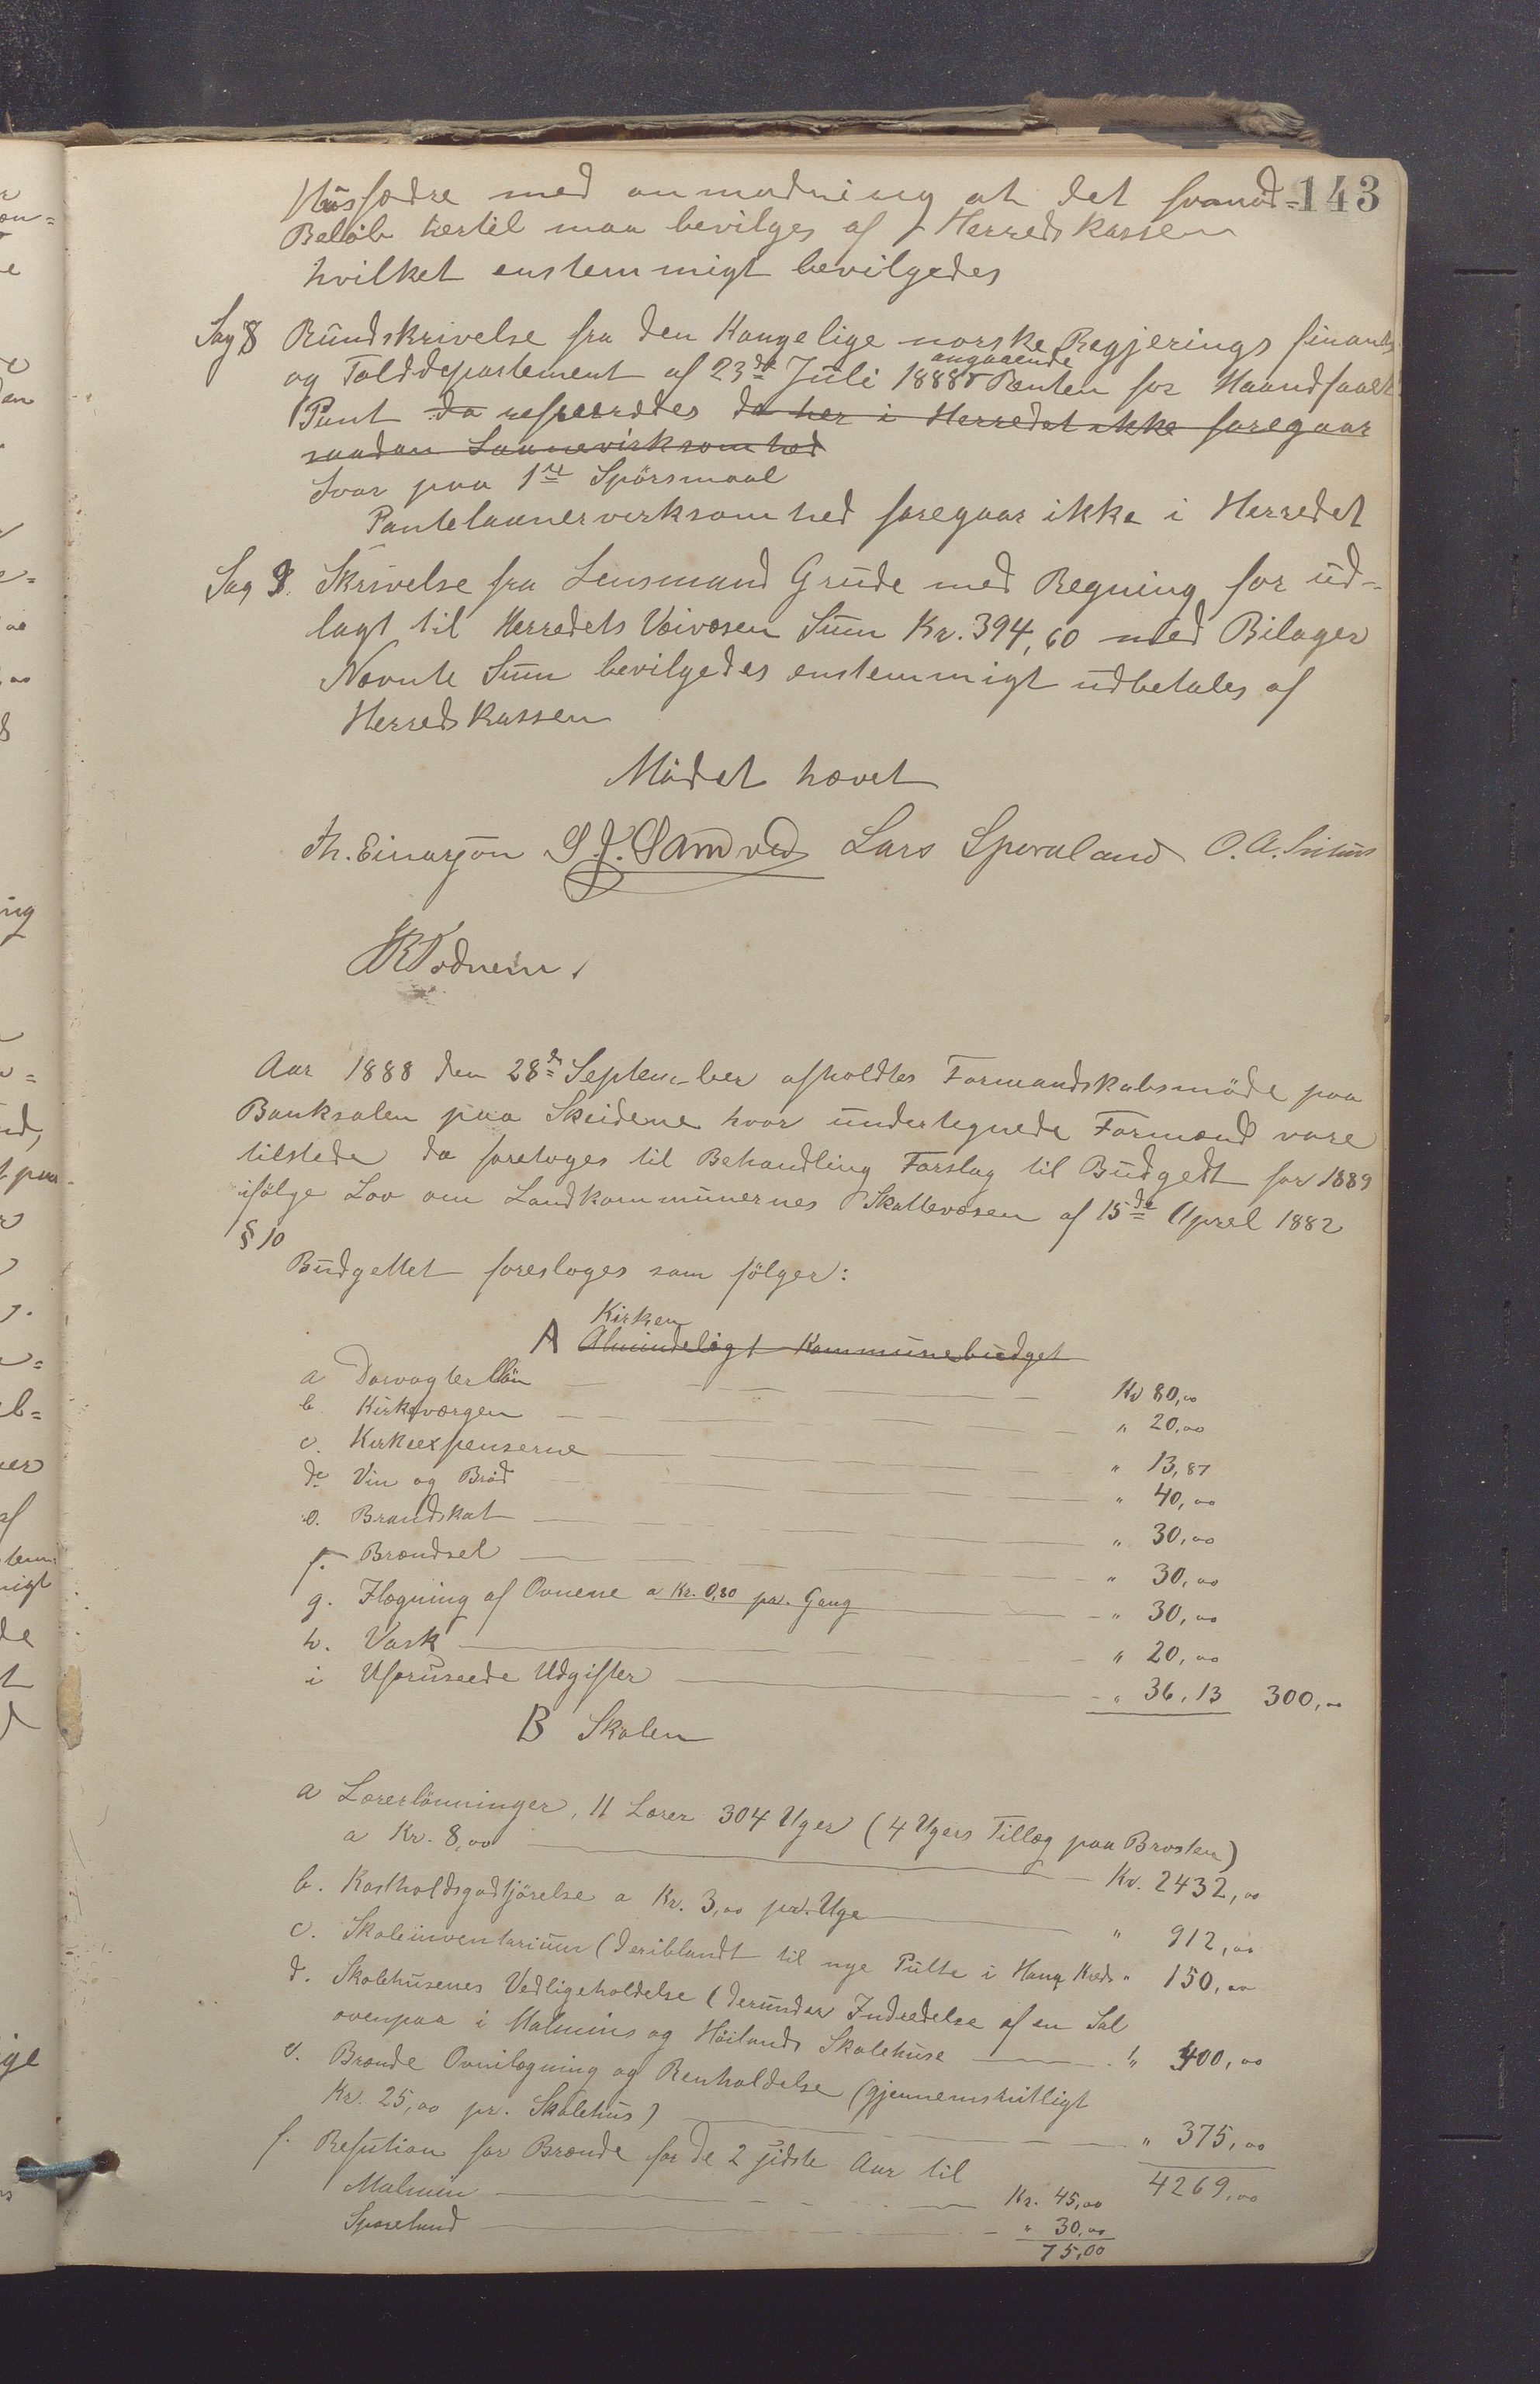 143
Husfædre med anmodning at det fornød-
Beløb hertil maa bevilges af Herredskassen
hvilket enstemmigt bevilgedes
Sag 8 Rundskrivelse fra den Kongelige norske Regjerings finants
og Tolddepartement af 23de Juli 1888 angaaende Renten for Haandfaaet
Pant da refereredes da her i Herredet ikke foregaar
saadan Laanevirksomhed
Svar paa 1ste Spörsmaal
Pantelaanervirksomhed foregaar ikke i Herredet
Sag 9. Skrivelse fra Lensmand Grude med Regning for ud-
lagt til Herredets Veivæsen Sum Kr. 394,60 med Bilager
Nævnte Sum bevilgedes enstemmigt udbetales af
Herredskassen
Mödet hævet
Th. Einarson S. J. Samved Lars Sporaland O. A.
Aar 1888 den 28de September afholdtes Formandskabsmöde paa
Banksalen paa Skeidene hvor undertegnede Formænd vare
tilstede da foretoges til Behandling Forslag til Budgedt for 1889
ifölge Lov om Landkommunernes Skattevæsen af 15de April 1882
§ 10
Budgettet foresloges som fölger:
Kirken
A Almindeligt Kommunebudget
a Dorvagterlön Kr 80,00
b Kirkeværgen " 20,00
c. Kirkeexpenserne " 13,87
de Vin og Bröd " 40,00
e. Brandskat " 30,00
f. Brændsel " 30,00
g. Ilægning af Ovnene a Kr. 0,80 pr. Gang " 30,00
h. Vask " 20,00
i Uforuseede Udgifter " 36,13 300,00
B Skolen
a Lærerlönninger, 11 Lærer 304 Uger (4 Ugers Tillæg paa Brosten)
a Kr. 8,00 Kr. 2432,00
b. Kostholdsgodtjörelse a Kr. 3,00 pr. Uge " 912,00
c. Skoleinventarium (deriblandt til nye Pulte i Hana Kreds " 150,00
d. Skolehusenes Vedligeholdelse (derunder Indredelse af en Sal
ovenpaa i Malmins og Höilands Skolehuse " 400,00
e. Brænde Ovnilægning og Renholdelse (gjennemsnitligt
Kr. 25,00 pr. Skolehus) " 375,00
f. Refution for Brænde for de 2 sidste Aar til 4269,00
Malmin Kr. 45,00
Sporeland " 30,00
75,00